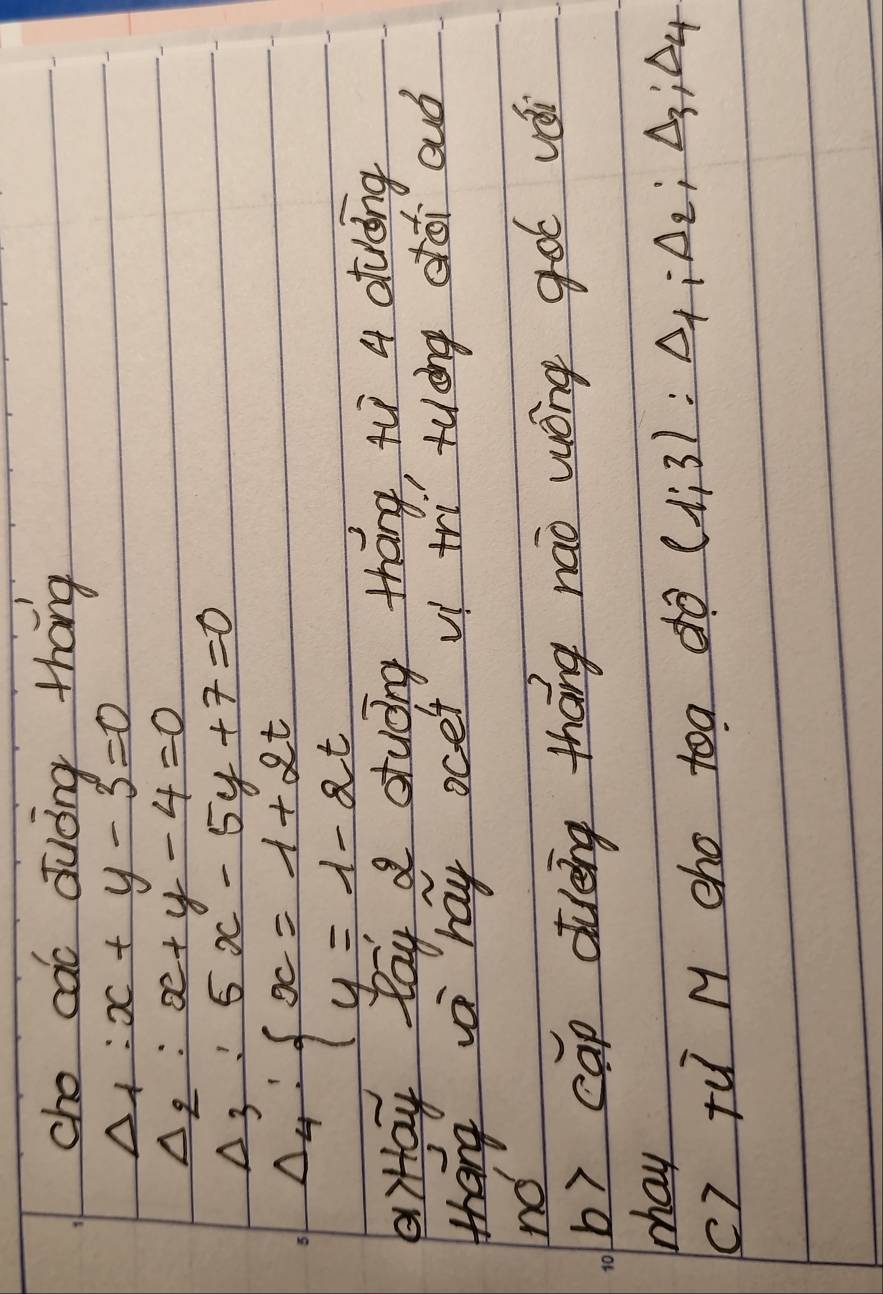 cho các đường thẳng
Δ1 : x + y - 3 = 0
Δ2 : x + y - 4 = 0
Δ3 : 5x - 5y + 7 = 0
Δ4 : { x = 1 + 2t
y = 1 - 2t
a> Hãy lấy 2 đường thẳng từ 4 đường
thẳng và hãy xét vị trí tương đối cuả
nó
b> cặp đường thẳng nào vuông góc với
nhay
c> từ M cho toạ độ (1;3) : Δ1 ; Δ2 ; Δ3 ; Δ4
1
5
10